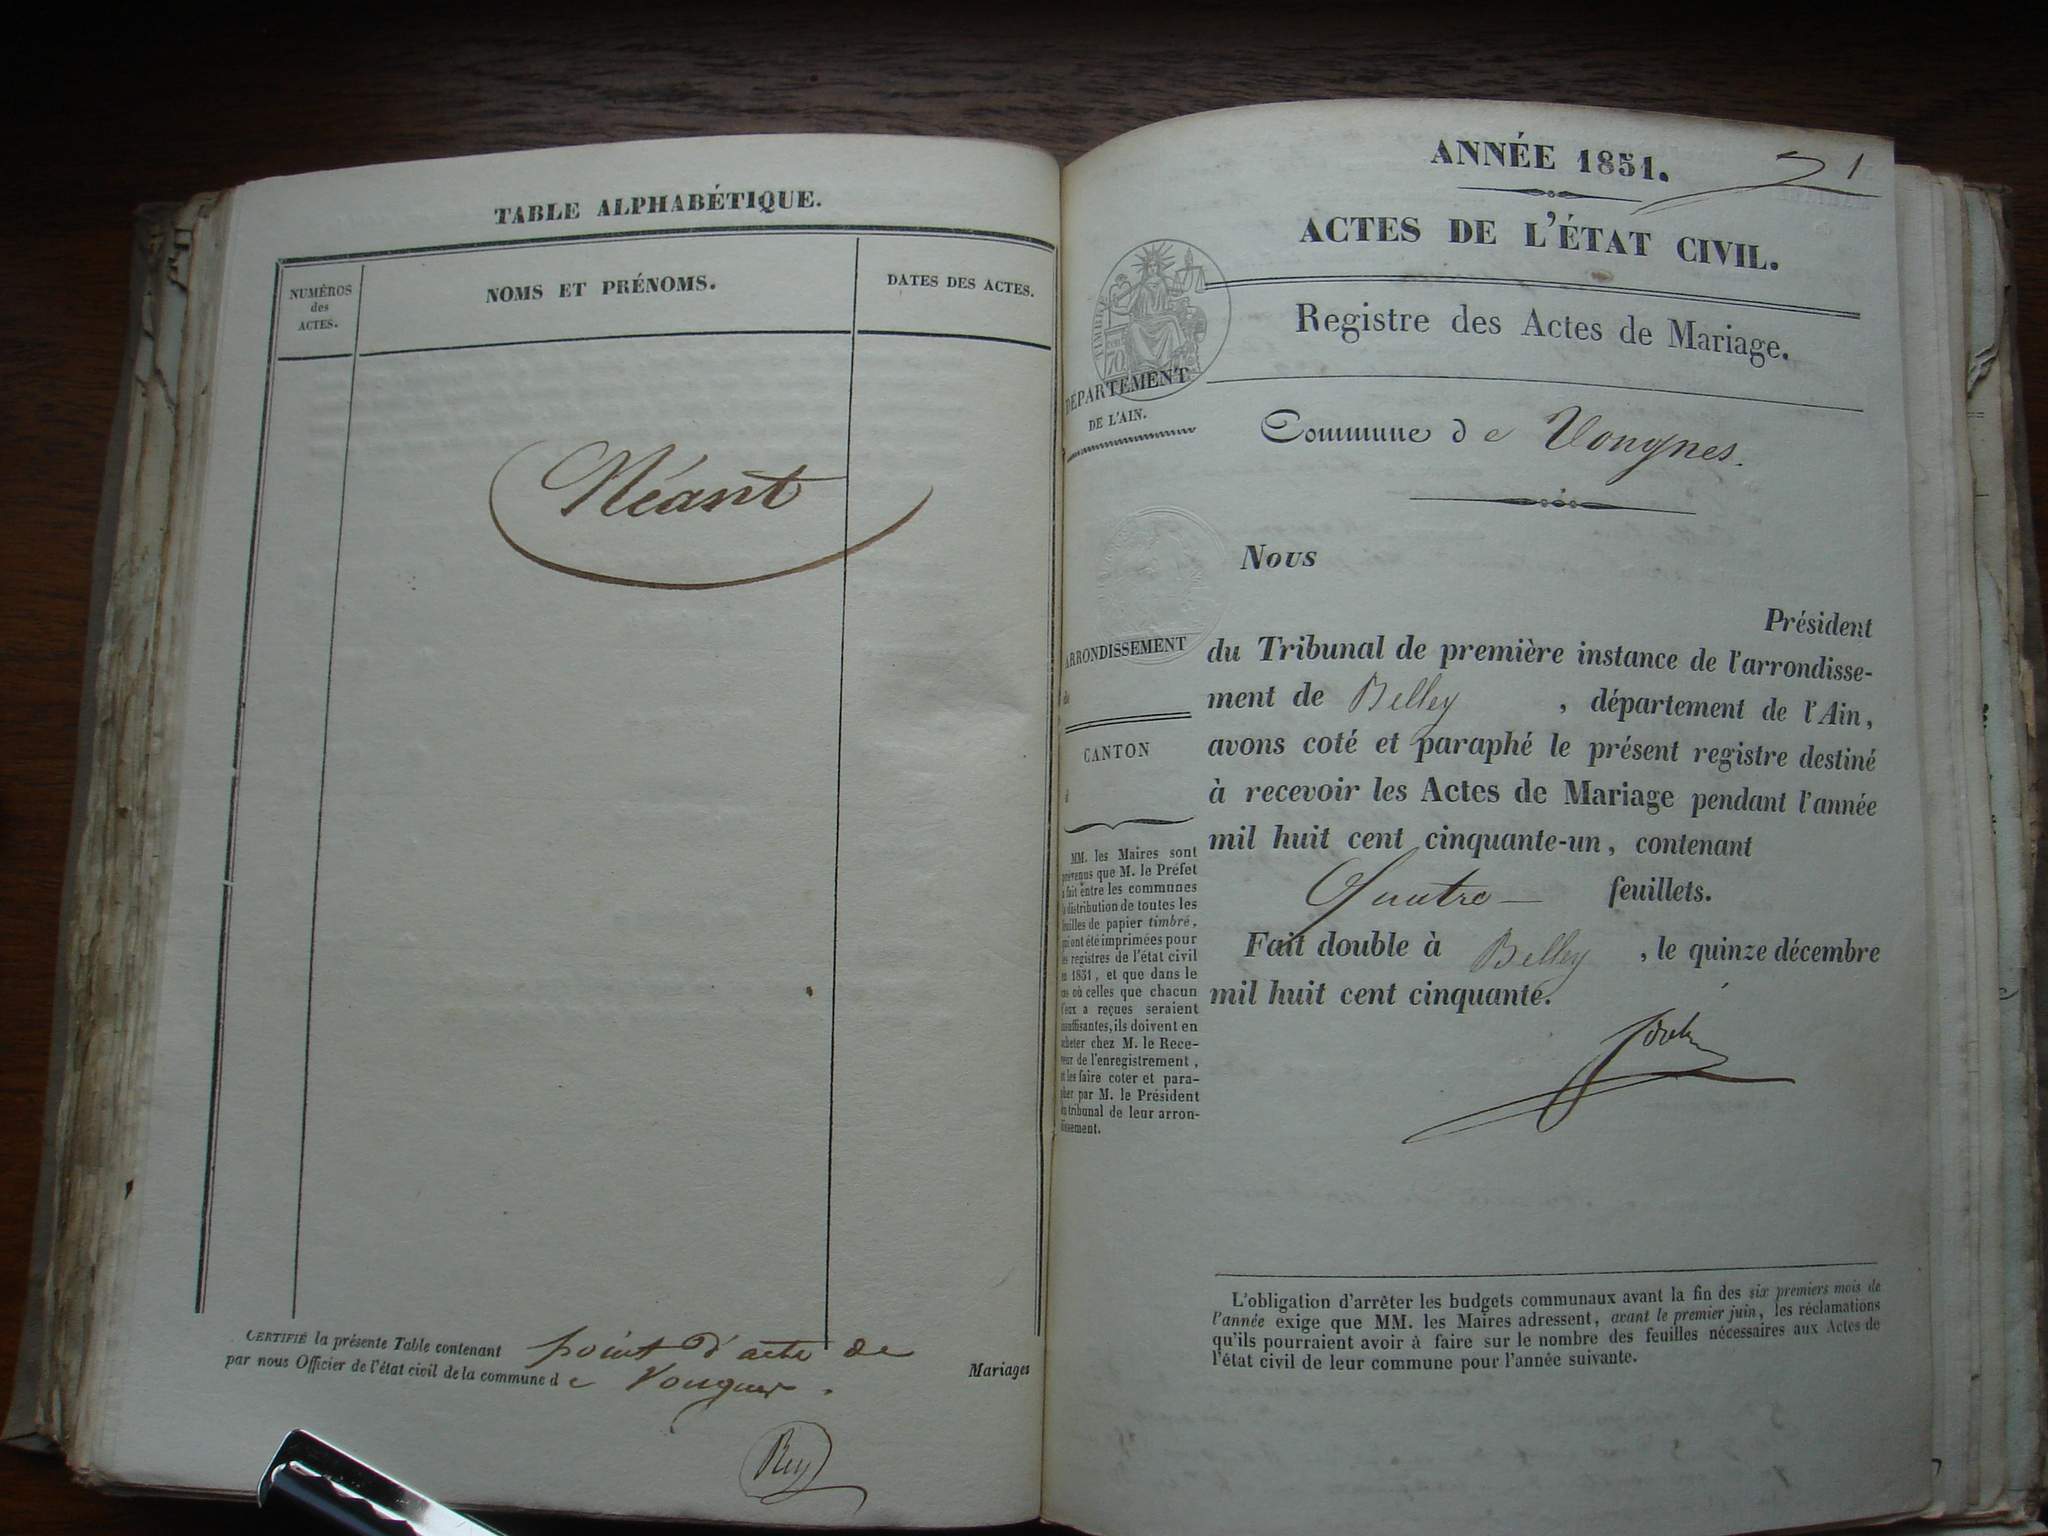 TABLE ALPHABÉTIQUE.
NUMÉROS
des
ACTES.
NOMS ET PRÉNOMS.
DATES DES ACTES.
Néant
CERTIFIÉ la présente Table contenant point d'acte de Mariages
par nous Officier de l'état civil de la commune de Vongnes.
Rey
ANNÉE 1851.
1
ACTES DE L'ÉTAT CIVIL.
Registre des Actes de Mariage.
TIMBRE
70
DÉPARTEMENT
DE L'AIN.
Commune de Vongnes.
Nous
Président
du Tribunal de première instance de l'arrondisse-
ment de Belley, département de l'Ain,
avons coté et paraphé le présent registre destiné
à recevoir les Actes de Mariage pendant l'année
mil huit cent cinquante-un, contenant
Quatre feuillets.
Fait double à Belley, le quinze décembre
mil huit cent cinquante.
ARRONDISSEMENT
de
CANTON
d
MM. les Maires sont
prévenus que M. le Préfet
a fait entre les communes
la distribution de toutes les
feuilles de papier timbré,
qui ont été imprimées pour
les registres de l'état civil
en 1851, et que dans le
cas où celles que chacun
d'eux a reçues seraient
insuffisantes, ils doivent en
acheter chez M. le Rece-
veur de l'enregistrement,
et les faire coter et para-
pher par M. le Président
du tribunal de leur arron-
dissement.
L'obligation d'arrêter les budgets communaux avant la fin des six premiers mois de
l'année exige que MM. les Maires adressent, avant le premier juin, les réclamations
qu'ils pourraient avoir à faire sur le nombre des feuilles nécessaires aux Actes de
l'état civil de leur commune pour l'année suivante.